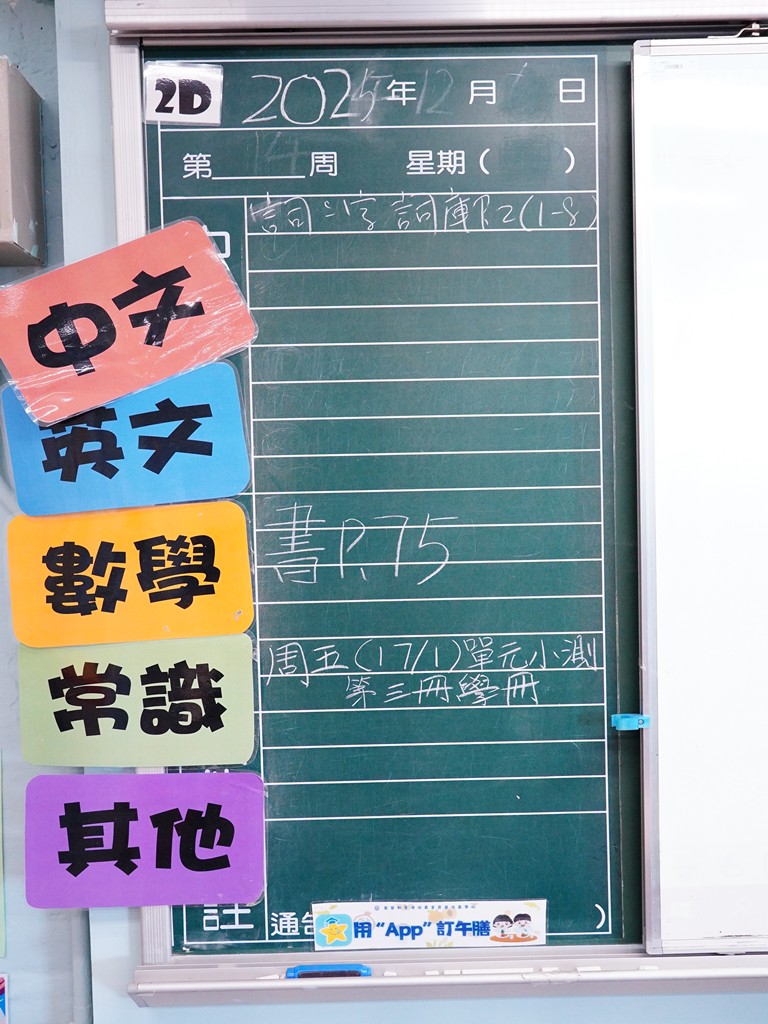 2D 2025年12月 日
第14周 星期( )
詞:字詞庫P.2(1-8)
中文
英文
書P.75
數學
周五(17/1)單元小測
第三冊學冊
常識
其他
註 通告 )
用“App”訂午膳